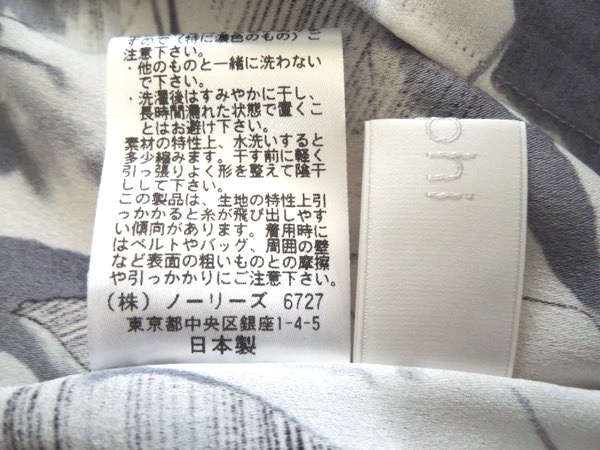 すので（特に濃色のもの）ご
注意下さい。
・他のものと一緒に洗わない
で下さい。
・洗濯後はすみやかに干し、
長時間濡れた状態で置くこ
とはお避け下さい。
素材の特性上、水洗いすると
多少縮みます。干す前に軽く
引っ張りよく形を整えて陰干
しして下さい。
この製品は、生地の特性上引
っかかると糸が飛び出しやす
い傾向があります。着用時に
はベルトやバッグ、周囲の壁
など表面の粗いものとの摩擦
や引っかかりにご注意下さい。
（株）ノーリーズ 6727
東京都中央区銀座1-4-5
日本製